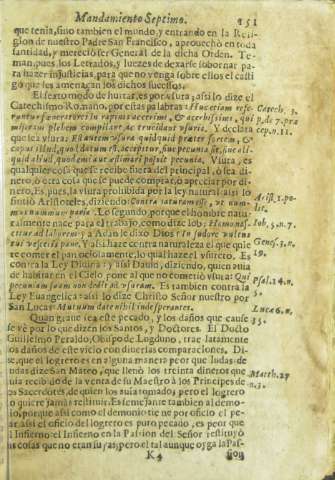 Mandamiento Septimo. 151
que tenia, sino tambien el mundo, y entrando en la Reli-
gion de nuestro Padre San Francisco, aprouechò en toda
santidad, y mereciò ser General de la dicha Orden. Te-
man, pues los Letrados, y Iuezes de dexarse sobornar pa-
ra hazer injusticias, para que no venga sobre ellos el casti-
go que les amenazan los dichos sucessos.
El sexto modo de hurtar, es por vsura, assi lo dize el
Catechismo Romano, por estas palabras: Huc etiam refe-
runtur fœneratores in rapinis acerrimi, & acerbissimi, qui
miseram plebem compilant, ac trucidant vsuris. Y declara
que sea vsura: Est autem vsura quidquid præter sortem, &
caput illud, quod datum est, accipitur, siue pecunia sit, siue ali-
quid aliud, quod emi aut æstimari possit pecunia. Vsura, es
qualquier cosa que se recibe fuera del principal, ò sea di-
nero, ò otra cosa que se puede comprar, ò apreciar por di-
nero. Es, pues, la vsura prohibida por la ley natural: assi lo
sintiò Aristoteles, diziendo: Contra naturam esse, vt num-
mus nummum pariat. Lo segundo, porque el hombre natu-
ralmente nace para el trabajo, como dize Iob: Homo nas-
citur ad laborem: y a Adan le dixo Dios: In sudore vultus
tui vesceris pane. Y assi haze contra naturaleza el que quie-
re comer el pan ociosamente, lo qual haze el vsurero. Es
contra la Ley Diuina: y assi Dauid, diziendo, quien auia
de habitar en el Cielo, pone al que no cometiò vsura: Qui
pecuniam suam non dedit ad vsuram. Es tambien contra la
Ley Euangelica: assi lo dize Christo Señor nuestro por
San Lucas: Mutuum date nihil inde sperantes.
Quan graue sea este pecado, y los daños que cause
se vè por lo que dizen los Santos, y Doctores. El Docto
Guillelmo Peraldo, Obispo de Lugduno, trae latamente
los daños de este vicio con diuersas comparaciones. Di-
se, que el logrero es en alguna manera peor que Iudas: de
Iudas dize San Mateo, que lleuò los treinta dineros que
auia recibido de la venta de su Maestro à los Principes de
los Sacerdotes, de quien los auia tomado; pero el logrero
no quiere jamàs restituir. Es semejante tambien al demo-
nio, porque assi como el demonio tiene por oficio el pe-
car, assi el oficio del logrero es puro pecado, es peor que
el Infierno: el Infierno en la Passion del Señor restituyò
las cosas que no eran suyas; pero el tal aunque oyga la Pas-
K4 sion
Catech. 3.
p. de 7. præ
cep. n. 11.
Arist. 1. po-
lit.
Iob. 5. n. 7.
Genes. 3. n.
19.
Psal. 14. n.
5.
Luc. 6. n.
35.
Matth. 27
n. 3.